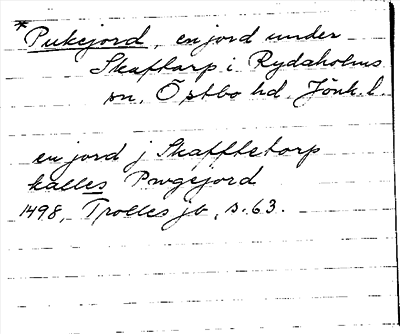 *Pukejord, en jord under
Skaftarp i Rydaholms
sn, Östbo hd, Jönk. l.
en jord j Skaffletorp
kalles Pwgejord
1498, Trolles jb, s. 63.